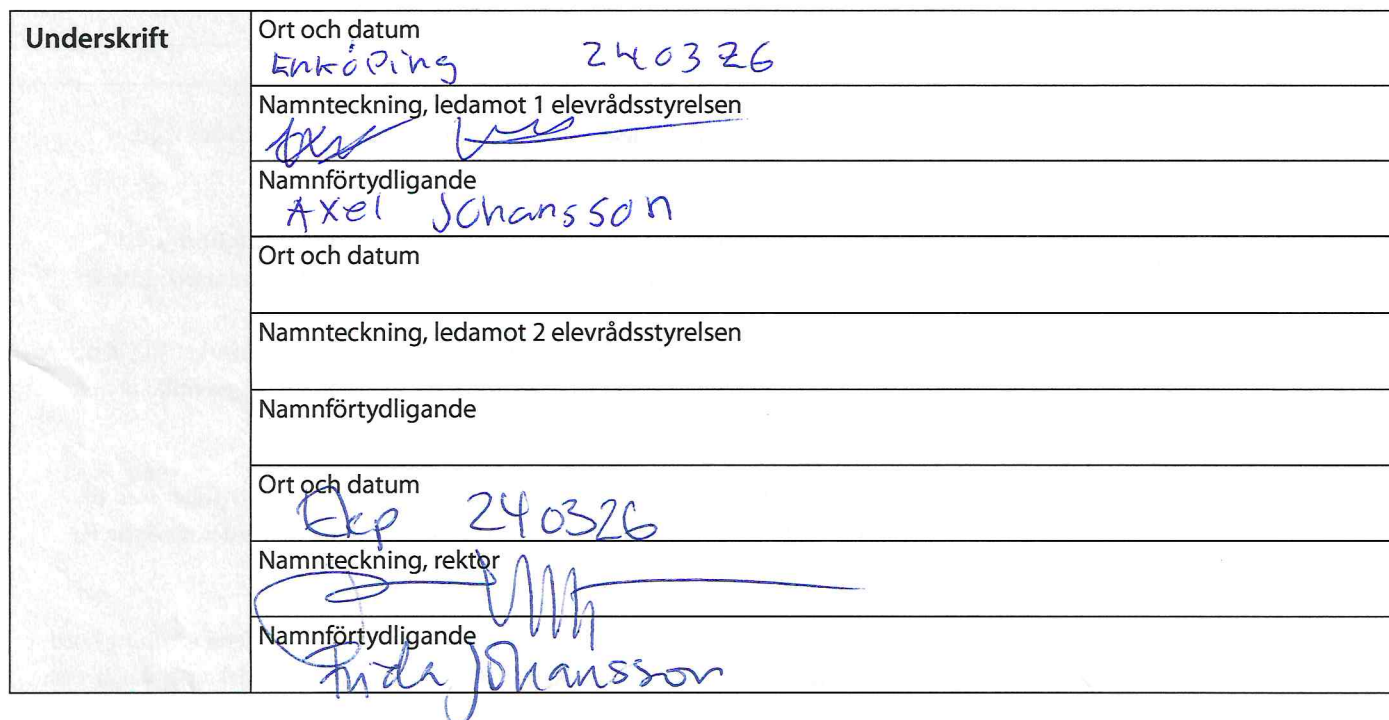 Underskrift
Ort och datum
Enköping 240326
Namnteckning, ledamot 1 elevrådsstyrelsen
Namnförtydligande
Axel Johansson
Ort och datum
Namnteckning, ledamot 2 elevrådsstyrelsen
Namnförtydligande
Ort och datum
Ekp 240326
Namnteckning, rektor
Namnförtydligande
Frida Johansson